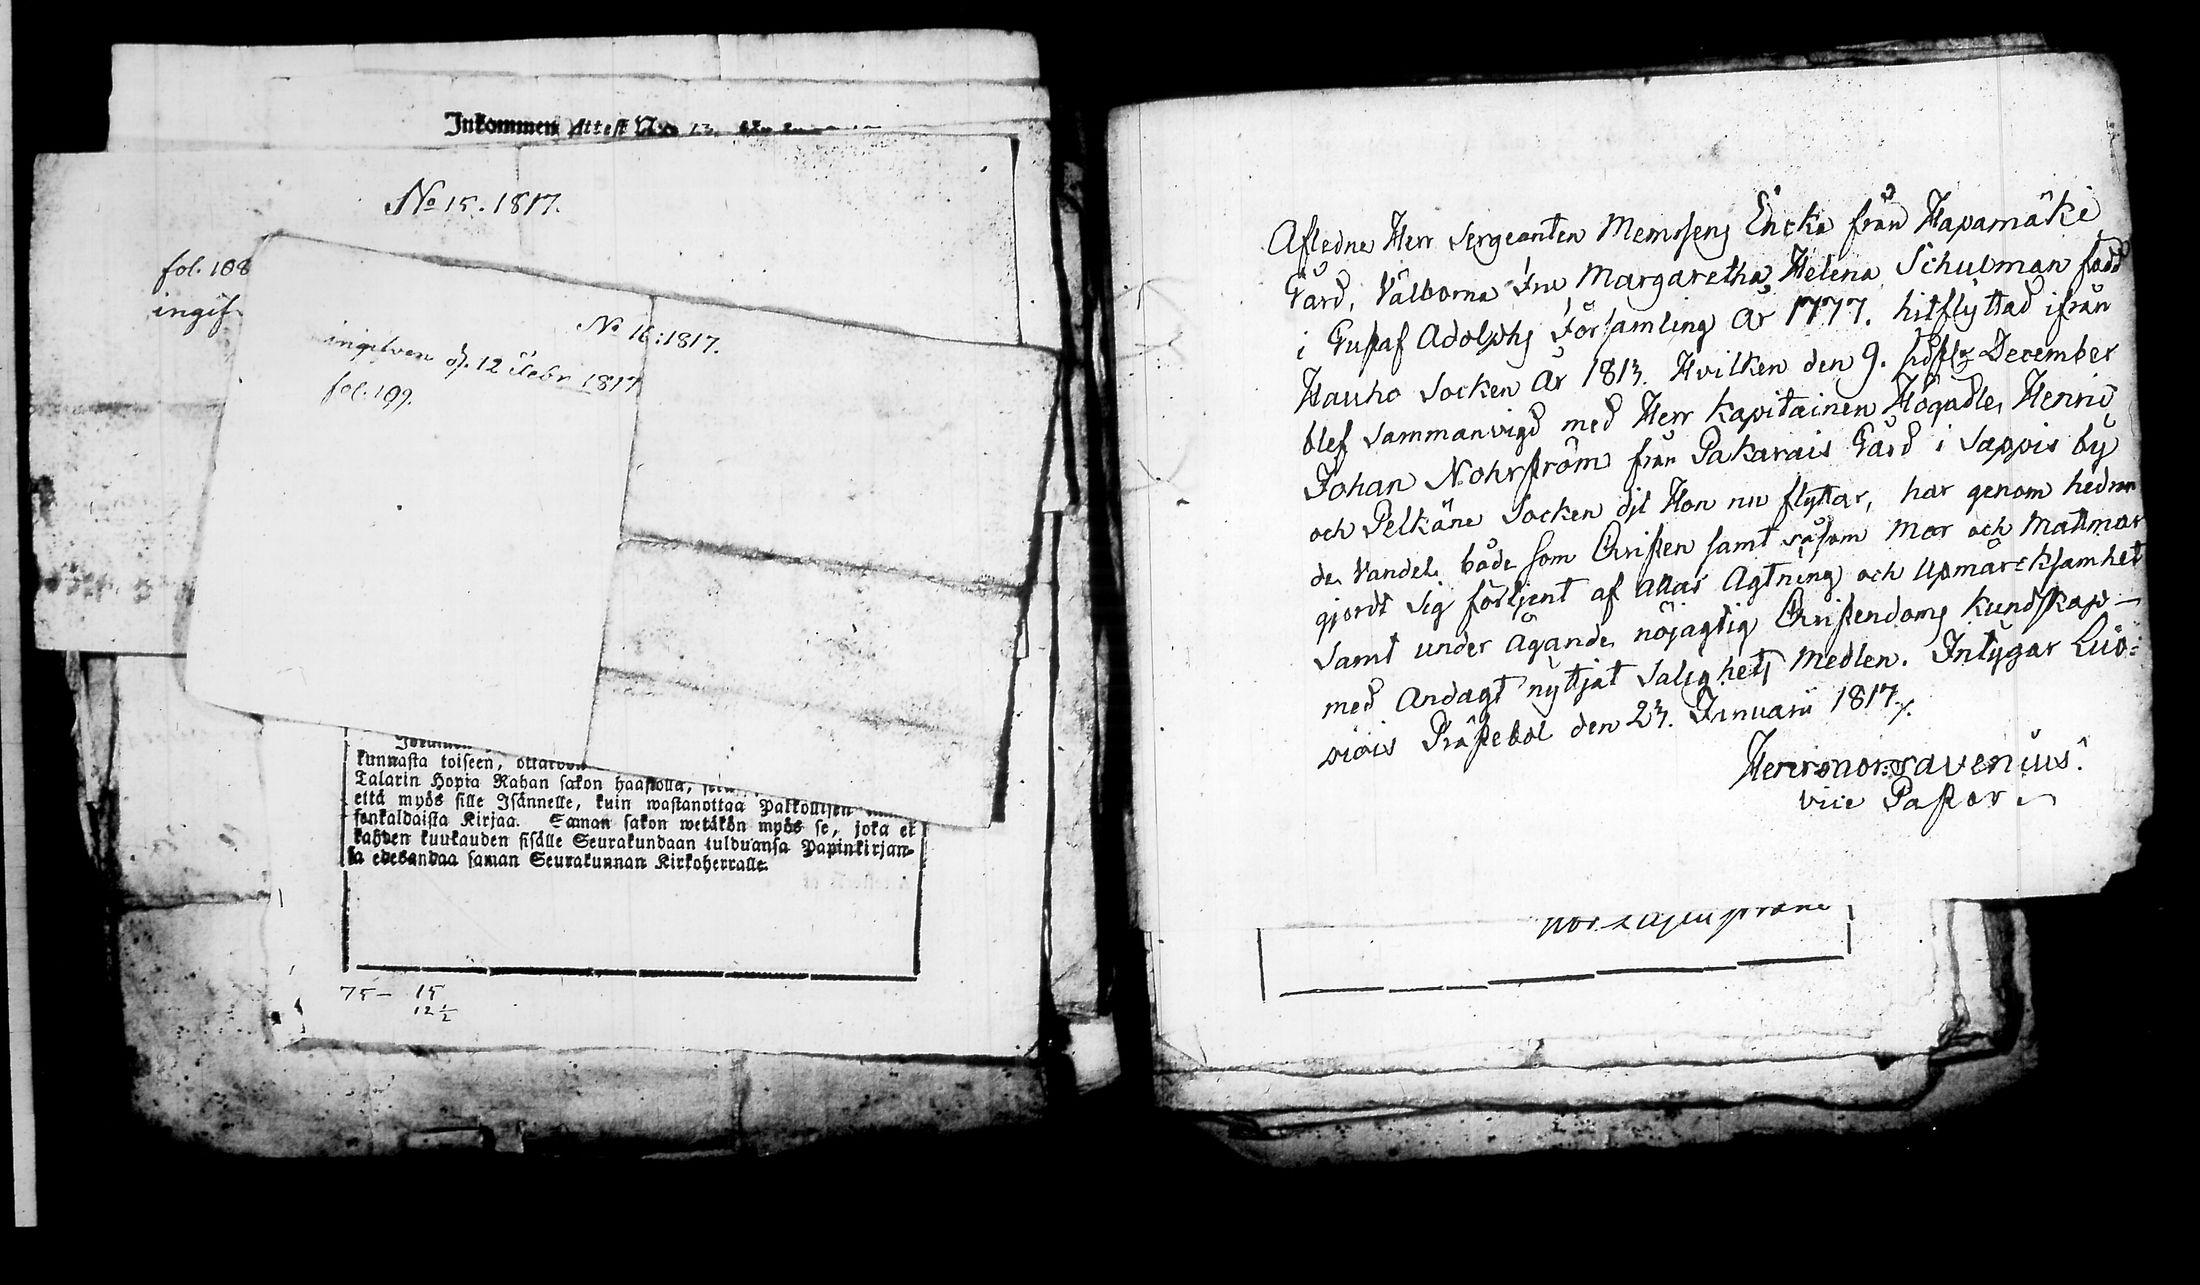 Inkommen Attest N:o 13.
No 15. 1817.
fol. 108
ingif
No 16: 1817.
ingifven d. 12 Febr 1817
fol. 199.
kunnasta toiseen,
Talarin Hopia Rahan sakon haastolla,
että myös sille Isännelle, kuin wastanottaa Palkollisen
senkaldaista Kirjaa. Saman sakon wetäkön myös se, joka ei
kahden kuukauden sisälle Seurakundaan tulduansa Papinkirjan-
sa edesandaa saman Seurakunnan Kirkoherralle.
75 - 15
12 1/2
Afledne Herr Sergeanten Memsens Encka från Hapamäki
Gård, Välborna Fru Margaretha Helena Schulman född
i Gustaf Adolphs Församling År 1777. hitflyttad ifrån
Hauho Socken År 1813. Hvilken den 9. sidstl. December
blef Sammanvigd med Herr Kapitainen Högädle Henric
Johan Nohrström från Pakarais Gård i Sappis by
och Pelkäne Socken dit Hon nu flyttar, har genom hedran
de Vandel både som Christen samt såsom Mor och Matmor
gjordt sig förtjent af allas Agtning och Upmärcksamhet
Samt under ägande nöjagtig Christendoms Kundskap —
med Andagt nyttjat Salighets Medlen. Intygar Luo:
piois Prästebol den 23. Januarii 1817.
avenius.
vice Pastor